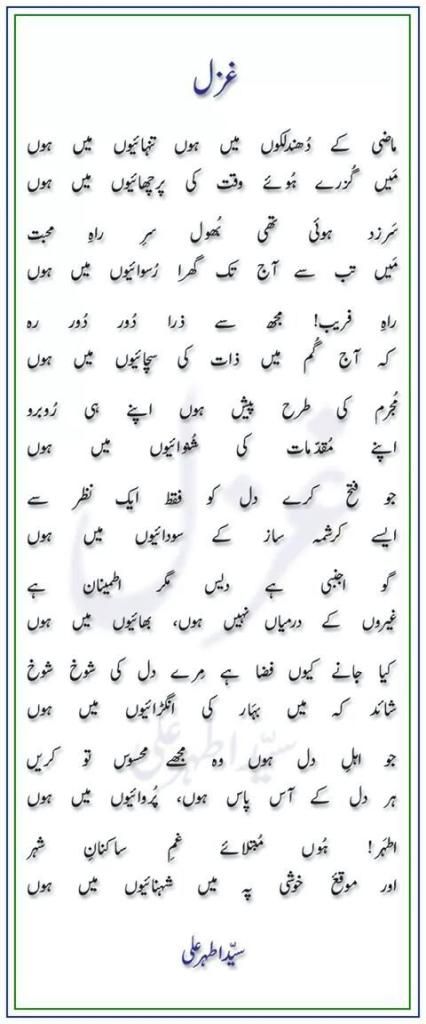 غزل
ماضی کے دُھندلکوں میں ہوں تنہائیوں میں ہوں
مَیں گُزرے ہُوئے وقت کی پرچھائیوں میں ہوں
سَرزد ہوئی تھی بُھول سرِ راہِ محبت
مَیں تب سے آج تک گھرا رُسوائیوں میں ہوں
راہِ فریب! مجھ سے ذرا دُور دُور رہ
کہ آج گُم میں ذات کی سچائیوں میں ہوں
مُجرم کی طرح پیش ہوں اپنے ہی رُوبرو
اپنے مُقدّمات کی شُنوائیوں میں ہوں
جو فتح کرے دل کو فقط ایک نظر سے
ایسے کرشمہ ساز کے سودائیوں میں ہوں
گو اجنبی ہے دیس مگر اطمینان ہے
غیروں کے درمیاں نہیں ہوں، بھائیوں میں ہوں
کیا جانے کیوں فضا ہے مِرے دل کی شوخ شوخ
شائد کہ میں بہار کی انگڑائیوں میں ہوں
جو اہلِ دل ہوں وہ مجھے محسوس تو کریں
ہر دل کے آس پاس ہوں، پُروائیوں میں ہوں
اطہر! ہُوں مُبتلائے غمِ ساکنانِ شہر
اور موقعِٔ خوشی پہ میں شہنائیوں میں ہوں
سیّد اطہر علی